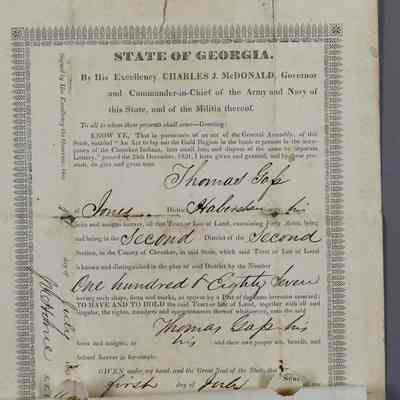 STATE OF GEORGIA.
By His Excellency CHARLES J. McDONALD, Governor
and Commander-in-Chief of the Army and Navy of
this State, and of the Militia thereof.
To all to whom these presents shall come—Greeting:
KNOW YE, That in pursuance of an act of the General Assembly, of this
State, entitled "An Act to lay out the Gold Region in the lands at present in the occu-
pancy of the Cherokee Indians, into small lots, and dispose of the same by separate
Lottery," passed the 24th December, 1831, I have given and granted, and by these pre-
sents, do give and grant unto
Thomas
of Jones District Habersham his
heirs and assigns forever, all that Tract or Lot of Land, containing Forty Acres, lying
and being in the Second District of the Second
Section, in the County of Cherokee, in said State, which said Tract or Lot of Land
is known and distinguished in the plan of said District by the Number
One hundred & Eighty Seven
having such shape, form and marks, as appear by a Plat of the same hereunto annexed:
TO HAVE AND TO HOLD the said Tract or Lot of Land, together with all and
singular, the rights, members and appurtenances thereof whatsoever, unto the said
Thomas his
heirs and assigns, to his and their own proper use, benefit, and
behoof forever in fee-simple.
GIVEN under my hand, and the Great Seal of the State, this
first day of July
Signed by His Excellency the Governor, this
day of July